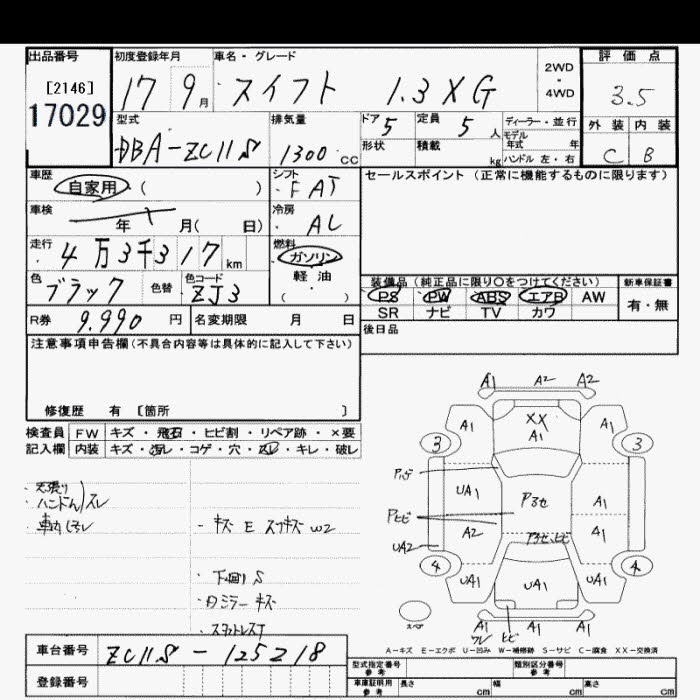 出品番号 初度登録年月 車名・グレード 評価点
[2146] 17 9月 スイフト 1.3XG 2WD・4WD 3.5
17029
型式 排気量 ドア 定員 ディーラー・並行 外装 内装
DBA-ZC11S 1300cc 5 5人 モデル年式 年 C B
形状 積載 kg ハンドル 左・右
車歴 シフト セールスポイント (正常に機能するものに限ります)
自家用 ( ) FAT
車検 冷房
年 月( 日) AC
走行 燃料
4万3千317km ガソリン
軽油
( )
色 色替 色コード 装備品 (純正品に限り○をつけてください) 新車保証書
ブラック ZJ3 PS PW ABS エアB AW 有・無
SR ナビ TV カワ
R券 9.990円 名変期限 月 日 後日品
注意事項申告欄(不具合内容等は具体的に記入して下さい)
修復歴 有 〔箇所 〕
検査員 FW キズ・飛石・ヒビ割・リペア跡・×要
記入欄 内装 キズ・汚レ・コゲ・穴・スレ・キレ・破レ
天張り
ハンドルスレ
・キズ E スリキズ W2
・下回りS
ミラーキズ
スタットレスT
A1 A2 A2
XX
A1 A1 A1
3 3
UA1 Pろせ A1
Pヒビ
A2 A1
UA2
4 4
UA1 UA1 UA1
A1 A1 A1
ワレ ヒビ
A-キズ E-エクボ U-凹み W-補修跡 S-サビ C-腐食 XX-交換済
車台番号 ZC11S-125218
登録番号
型式指定番号 参考 類別区分番号 参考
車庫証明用 参考 長さ cm 幅 cm 高さ cm